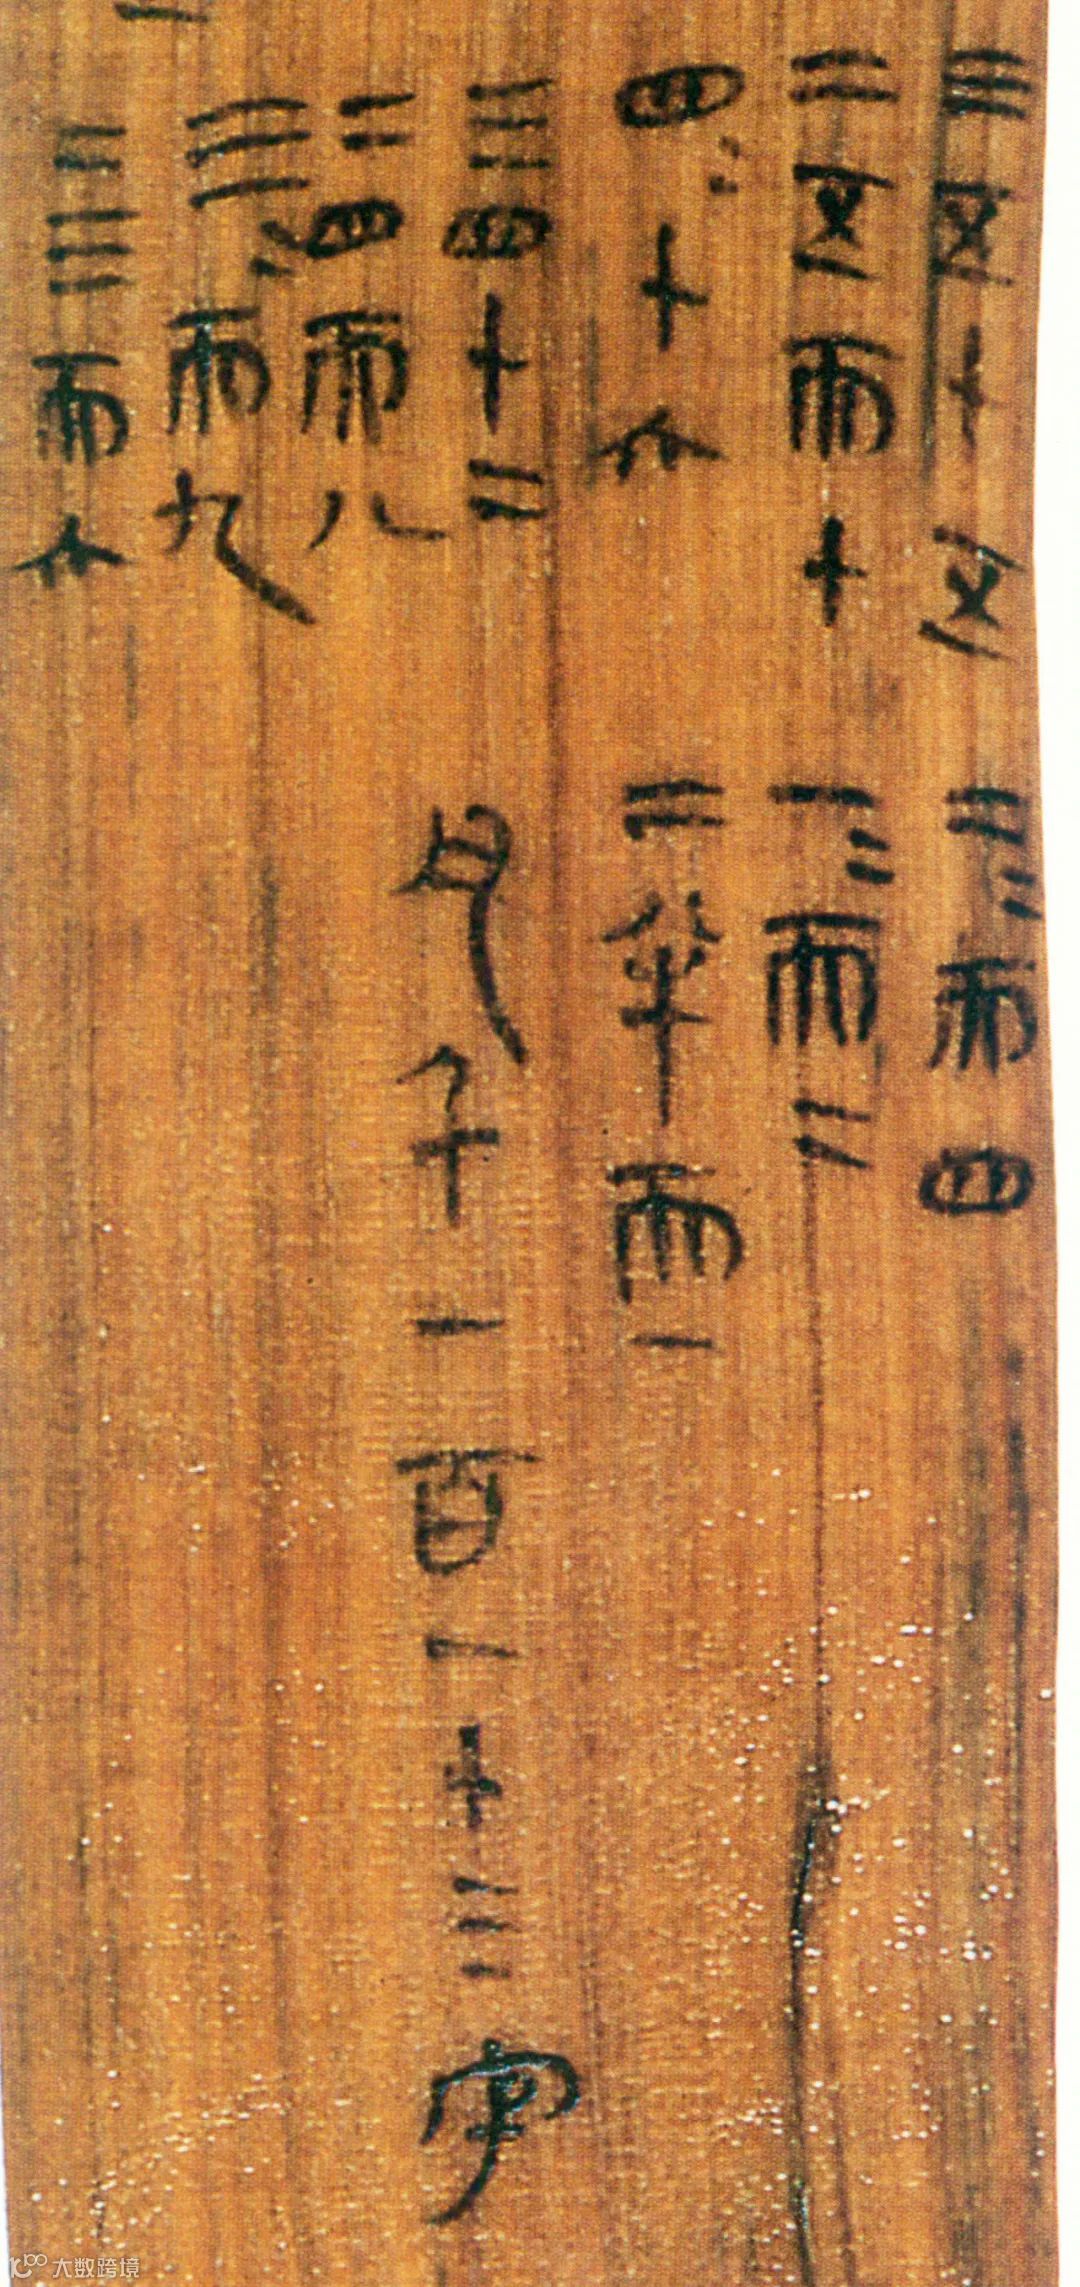 三五十五
二五而十
四=十六
三四十二
二四而八
三=而九
二三而六
二=而四
一=而二
二半而一
凡千一百一十三字
大数跨境